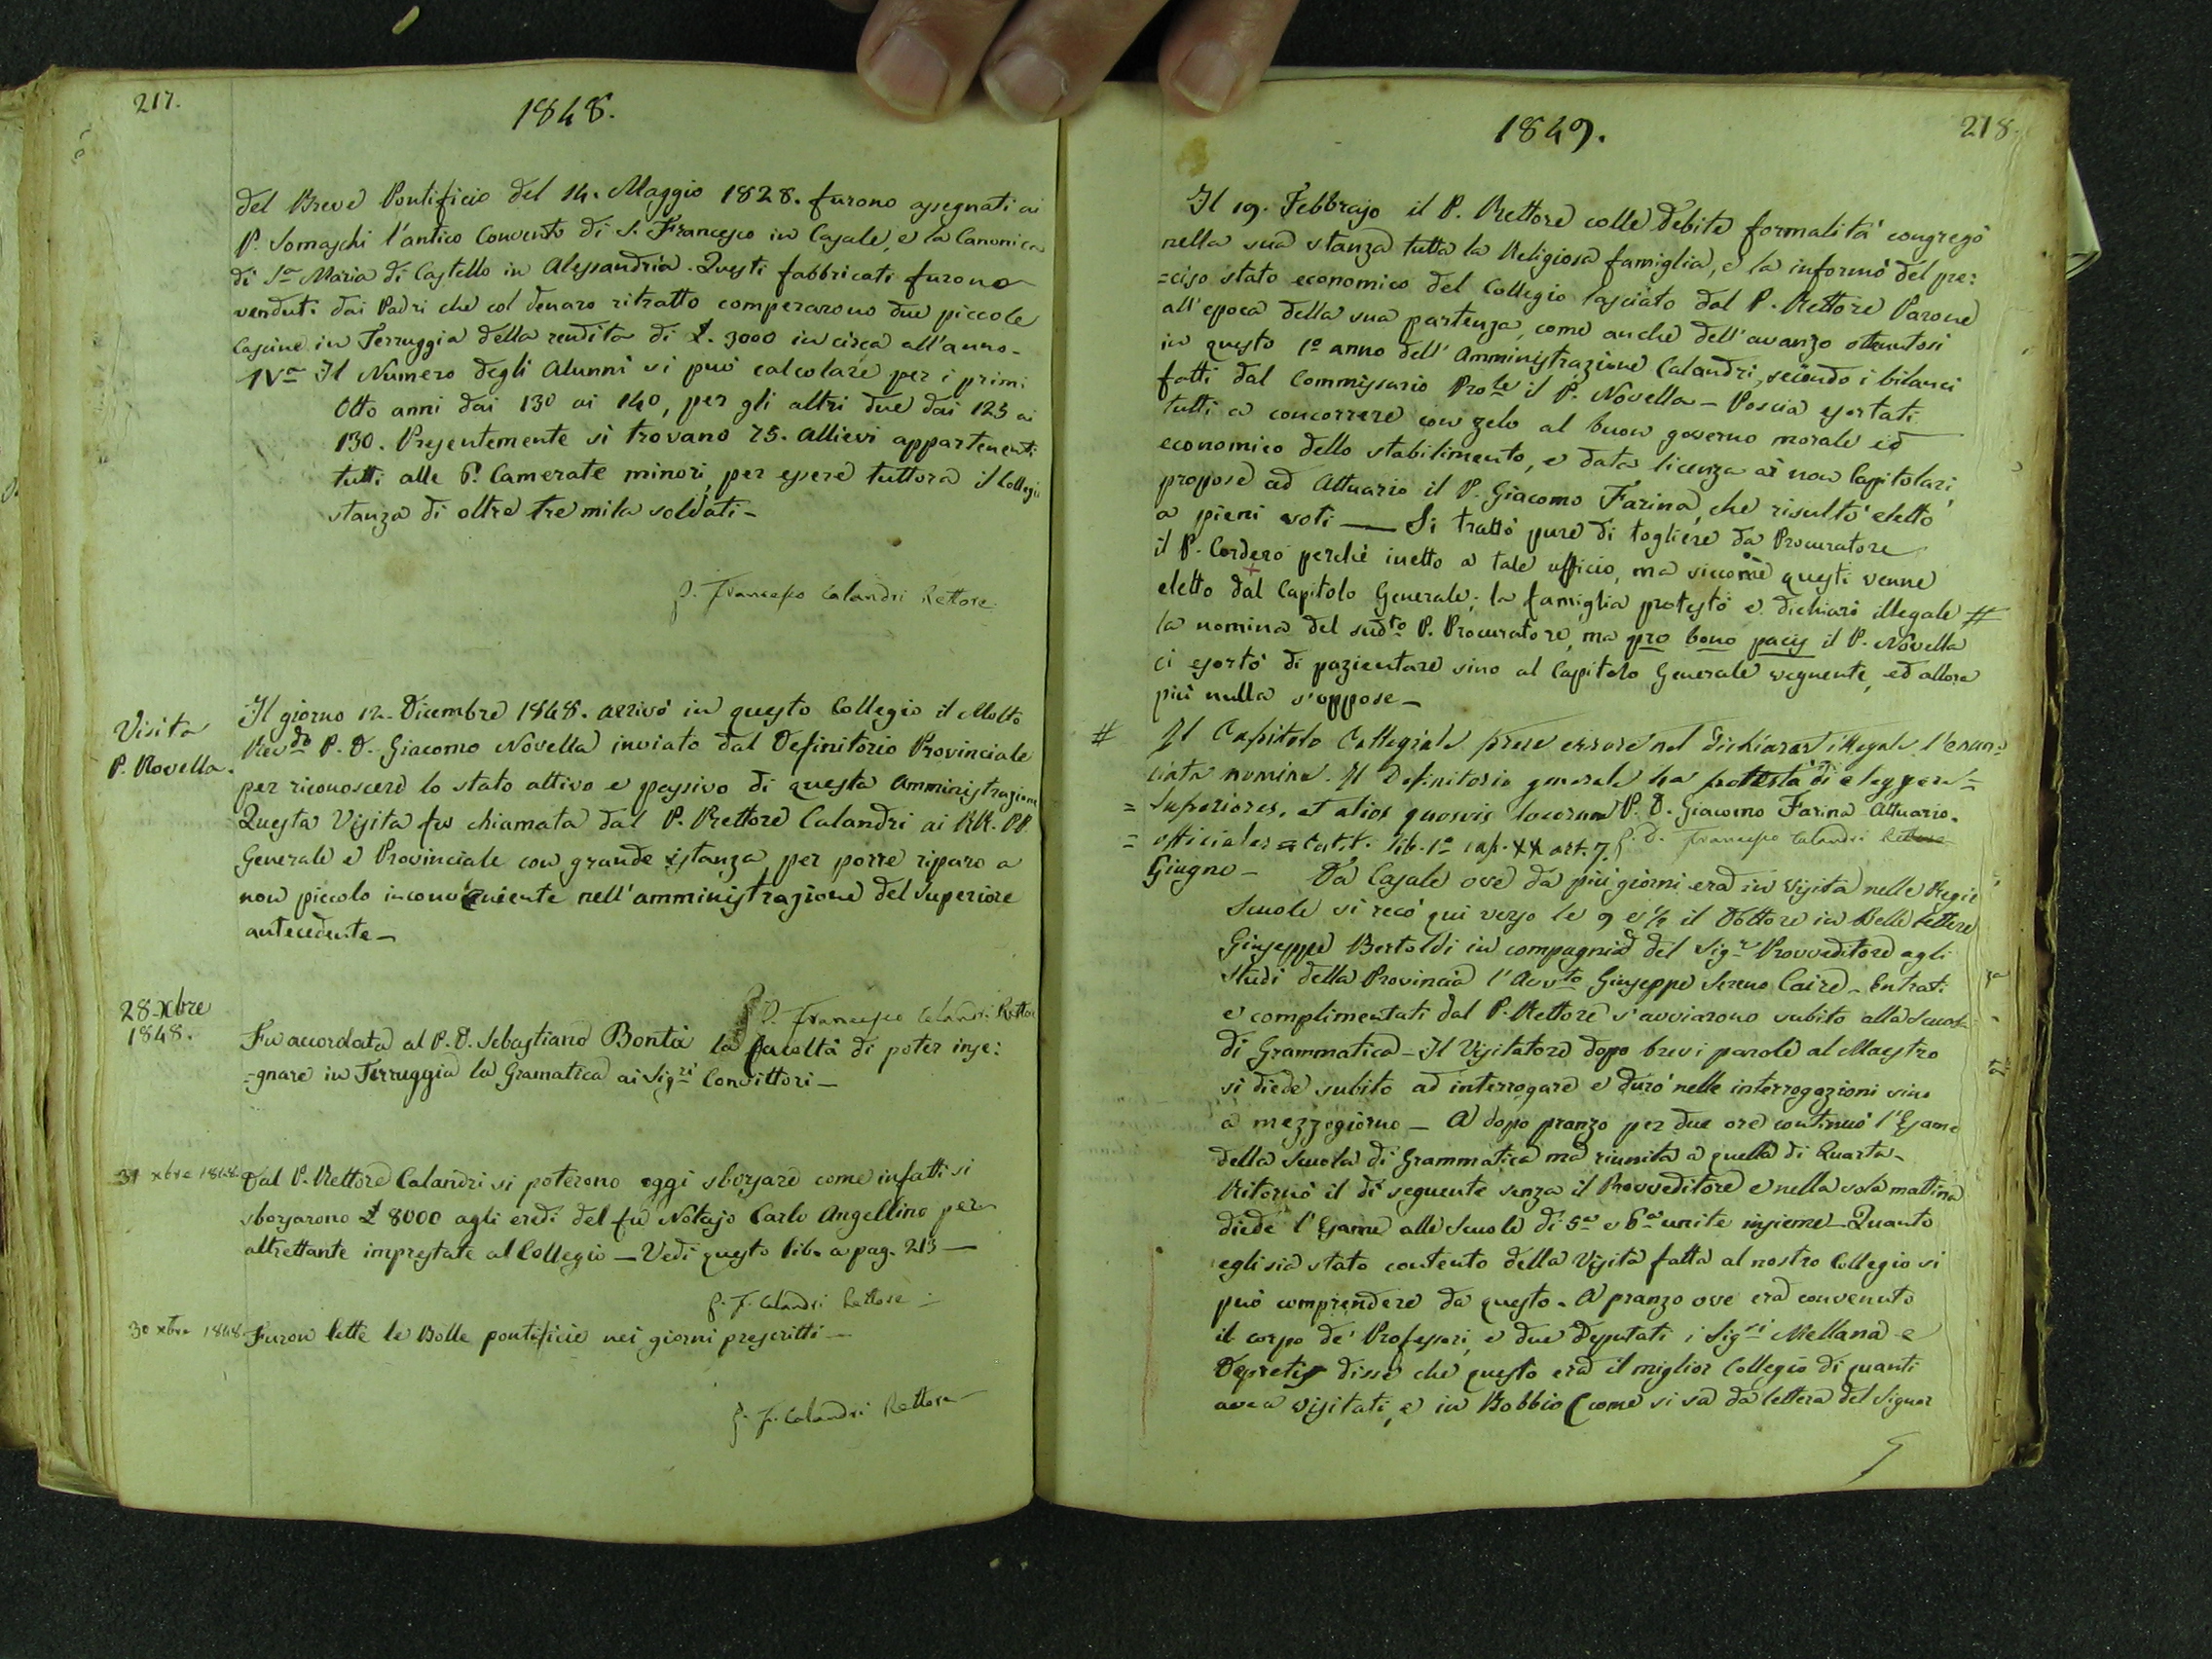 217.
1848.
del Breve Pontificio del 14. Maggio 1828. furono assegnati ai
P. Somaschi l'antico Convento di S. Francesco in Casale, e la Canonica
di S.a Maria di Castello in Alessandria. Questi fabbricati furono
venduti dai Padri che col denaro ritratto comperarono due piccole
Cascine in Terruggia della rendita di £. 3000 in circa all'anno.
IV.a Il Numero degli Alunni si può calcolare per i primi
Otto anni dai 130 ai 140, per gli altri due dai 125 ai
130. Presentemente si trovano 75. Allievi appartenenti
tutti alle Camerate minori, per essere tuttora il Collegio
stanza di oltre tre mila soldati -
P. Francesco Calandri Rettore
Visita
P. Novella.
Il giorno 12. Dicembre 1848. arrivò in questo Collegio il Molto
Rev.do P. D. Giacomo Novella inviato dal Definitorio Provinciale
per riconoscere lo stato attivo e passivo di questa Amministrazione
Questa Visita fu chiamata dal P. Rettore Calandri ai RR. PP.
Generale e Provinciale con grande istanza per porre riparo a
non piccolo inconveniente nell'amministrazione del Superiore
antecedente -
P. D. Francesco Calandri Rettore
28. Xbre
1848.
Fu accordata al P. D. Sebastiano Bontà la facoltà di poter inse:
=gnare in Terruggia la Gramatica ai Sig.ri Convittori -
31 xbre 1848
Dal P. Rettore Calandri si poterono oggi sborsare come infatti si
sborsarono £ 8000 agli eredi del fu Notajo Carlo Angellino per
altrettante imprestate al Collegio - Vedi questo lib. a pag. 213 -
P. F. Calandri Rettore
30 xbre 1848
Furon lette le Bolle pontificie nei giorni prescritti -
P. F. Calandri Rettore
1849.
218.
Il 19. Febbrajo il P. Rettore colle debite formalità congregò
nella sua stanza tutta la Religiosa famiglia, e la informò del pre:
=ciso stato economico del Collegio lasciato dal P. Rettore Parone
all'epoca della sua partenza, come anche dell'avanzo ottenutosi
in questo 1.o anno dell'Amministrazione Calandri, secondo i bilanci
fatti dal Commissario Pro.le il P. Novella - Poscia esortati
tutti a concorrere con zelo al buon governo morale ed
economico dello stabilimento, e data licenza ai non Capitolari,
propose ad Attuario il P. Giacomo Farina, che risultò eletto
a pieni voti - Si trattò pure di togliere da Procuratore
il P. Cordero perchè inetto a tale ufficio, ma siccome questi venne
eletto dal Capitolo Generale; la famiglia protestò e dichiarò illegale #
la nomina del sud.to P. Procuratore, ma pro bono pacis il P. Novella
ci esortò di pazientare sino al Capitolo Generale seguente, ed allora
più nulla s'oppose -
# Il Capitolo Collegiale prese errore nel dichiarar illegale l'enun:
ciata nomina. Il Definitorio generale ha potestà di eleggere =
= Superiores, et alios quosvis locorum P. D. Giacomo Farina Attuario.
= officiales = Cstt. lib. 1.o cap. XX art. 7. P. D. Francesco Calandri Rettore
Giugno - Da Casale ove da più giorni era in visita nelle Regie
Scuole si recò qui verso le 9 e ½ il Dottore in Belle lettere
Giuseppe Bertoldi in compagnia del Sig.r Provveditore agli
Studi della Provincia l'Avv.to Giuseppe Sereno Caire - Entrati
e complimentati dal P. Rettore s'avviarono subito alla Scuola
di Grammatica - Il Visitatore dopo brevi parole al Maestro
si diede subito ad interrogare e durò nelle interrogazioni sino
a mezzogiorno - A dopo pranzo per due ore continuò l'Esame
della Scuola di Grammatica ma riunita a quella di Quarta -
Ritornò il dì seguente senza il Provveditore e nella sola mattina
diede l'Esame alle Scuole di 5.a e 6.a unite insieme - Quanto
egli sia stato contento della Visita fatta al nostro Collegio si
può comprendere da questo. A pranzo ove era convenuto
il corpo de' Professori, e due Deputati i Sig.ri Mellana e
Depretis disse che questo era il miglior Collegio di quanti
avea visitati, e in Bobbio (come si sa da lettera del Signor